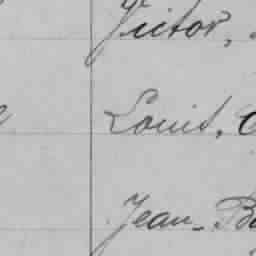 Victor,
Louis,
Jean-